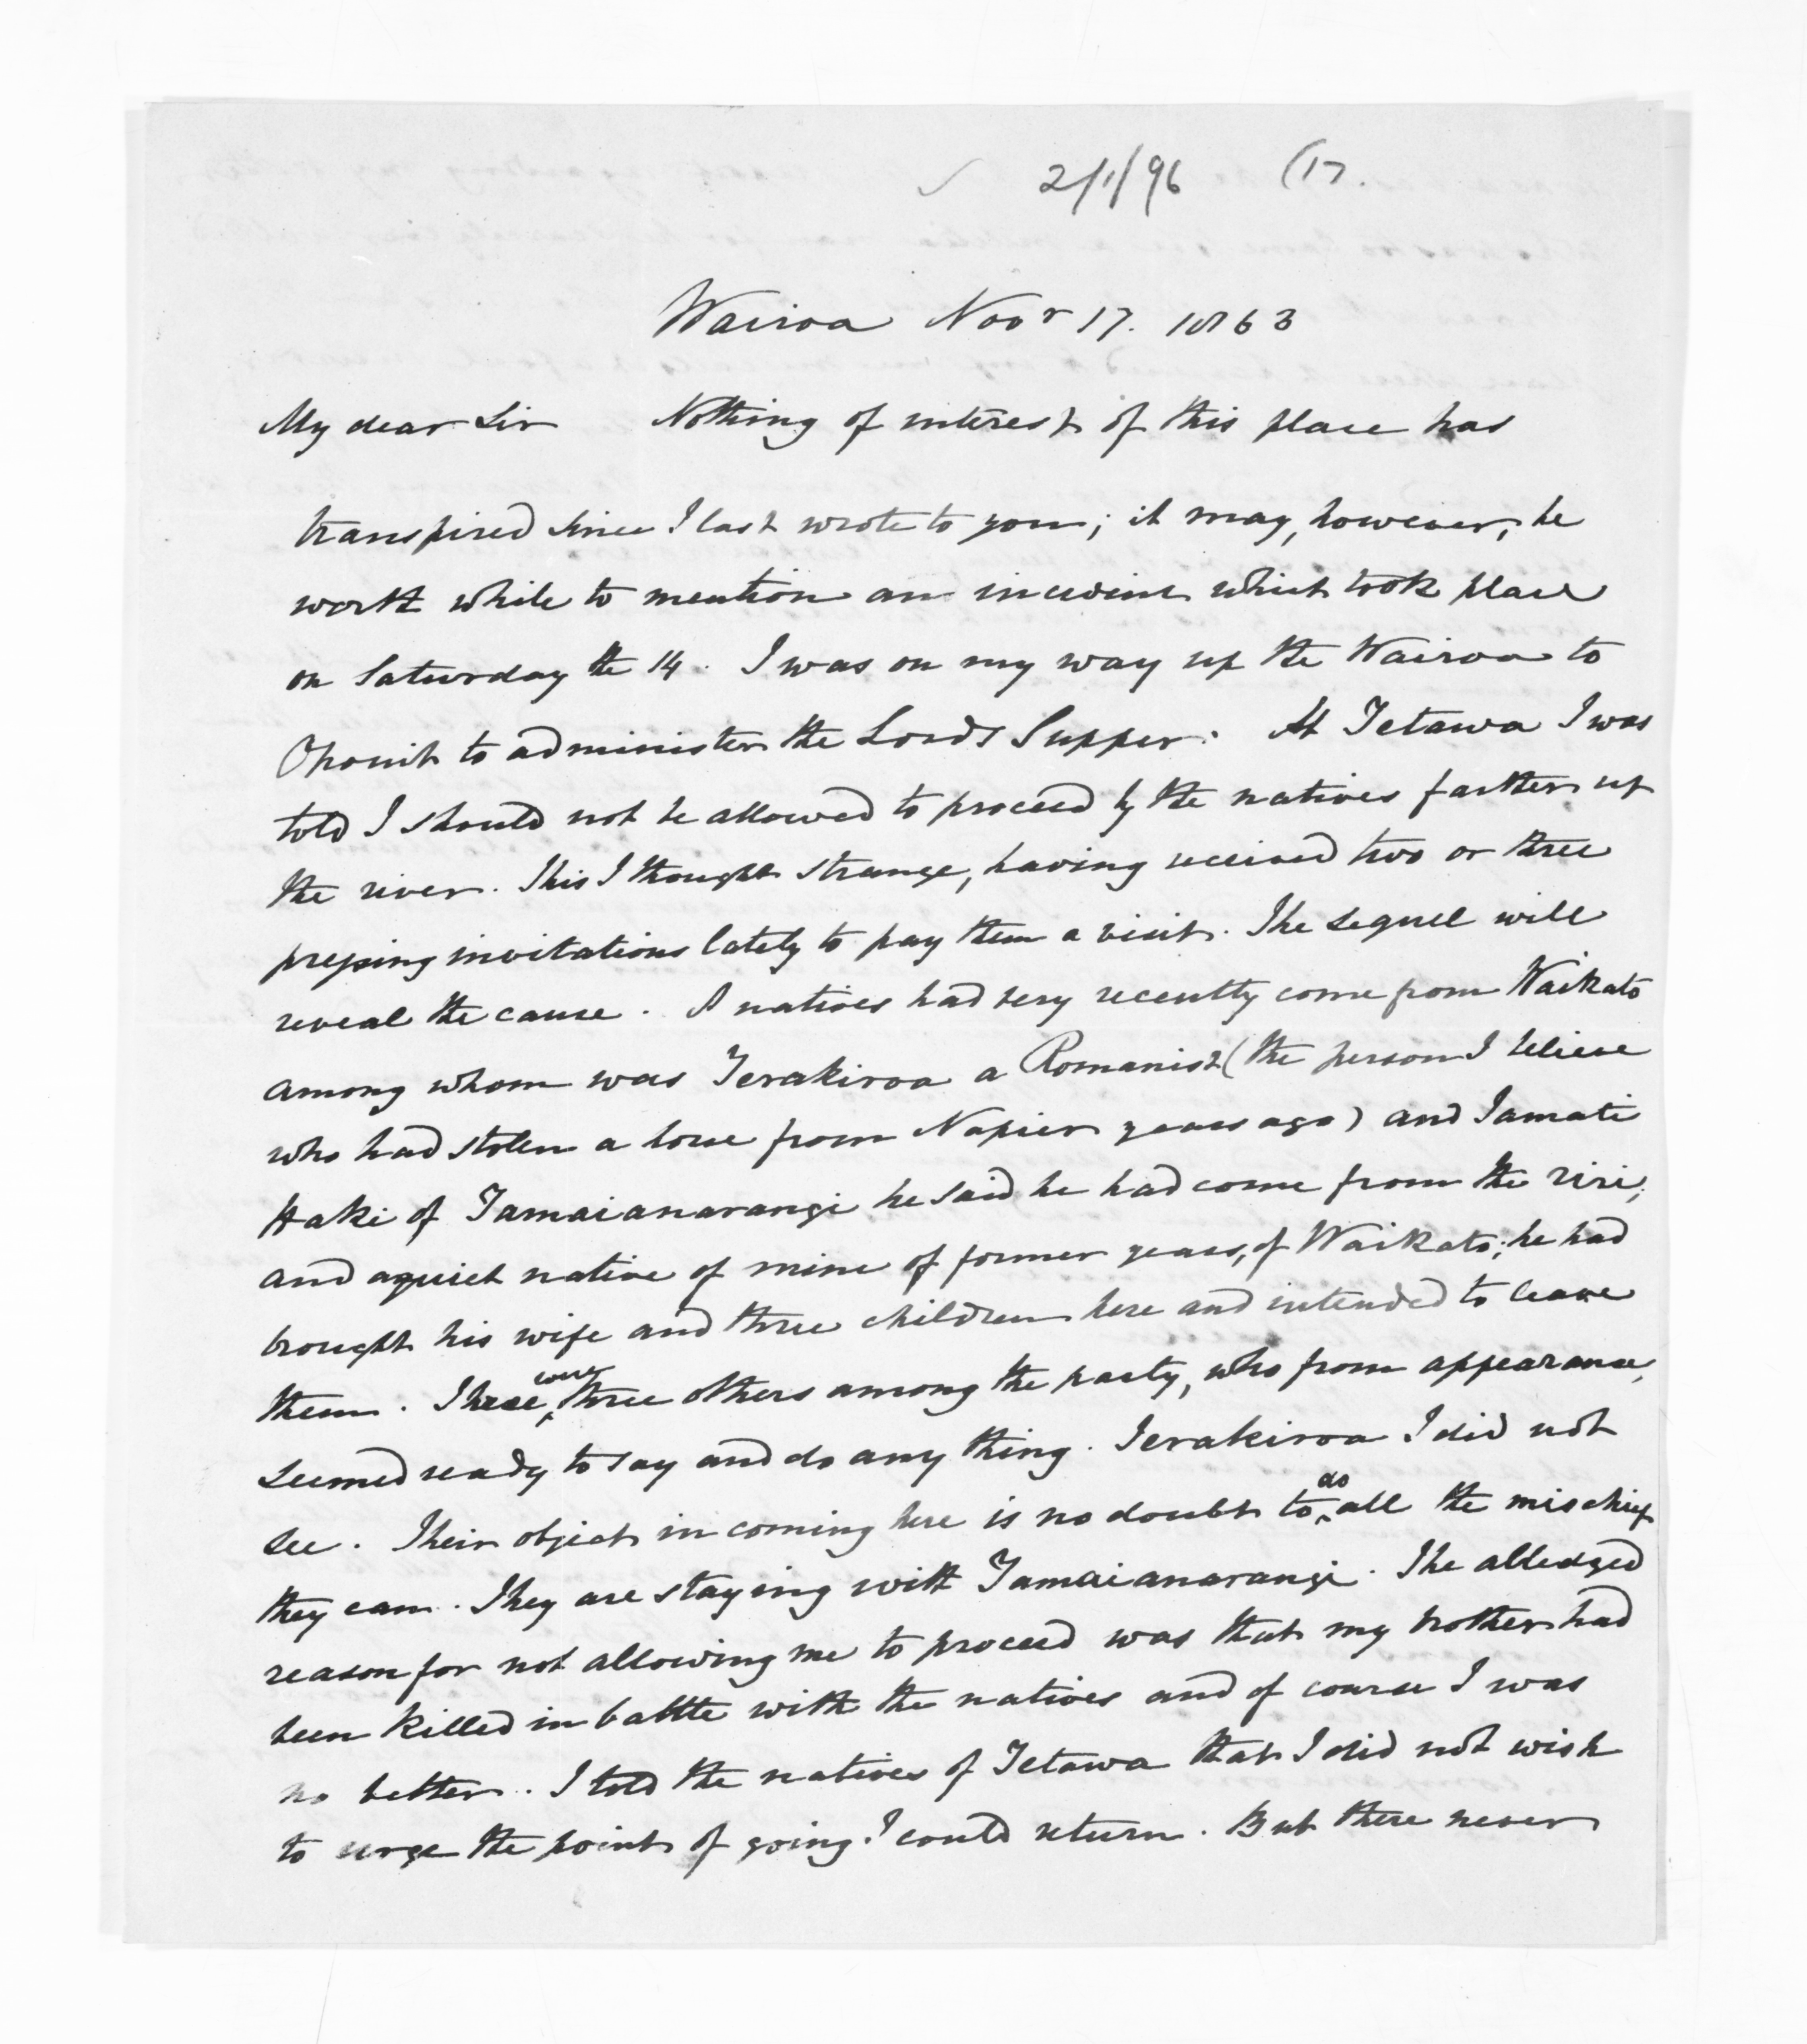 2/1/96 (17.
Wairoa Novr 17. 1863
My dear Sir Nothing of interest of this place has
transpired since I last wrote to you; it may, however, be
worth while to mention an incident which took place
on Saturday the 14. I was on my way up the Wairoa to
Opouit to administer the Lord's Supper. At Tetawa I was
told I should not be allowed to proceed by the natives farther up
the river. This I thought strange, having received two or three
pressing invitations lately to pay them a visit. The sequel will
reveal the cause. natives had very recently come from Waikato
among whom was Terakiroa a Romanist (the person I believe
who had stolen a horse from Napier years ago) and Tamati
Haki of Tamaianarangi he said he had come from the riri;
and a quiet native of mine of former years, of Waikato; he had
brought his wife and three children here and intended to leave
them. There were three others among the party, who from appearance,
seemed ready to say and do any thing. Terakiroa I did not
see. Their object in coming here is no doubt to do all the mischief
they can. They are staying with Tamaianarangi. The alledged
reason for not allowing me to proceed was that my brother had
been killed in battle with the natives and of course I was
no better. I told the natives of Tetawa that I did not wish
to urge the point of going I could return. But there never